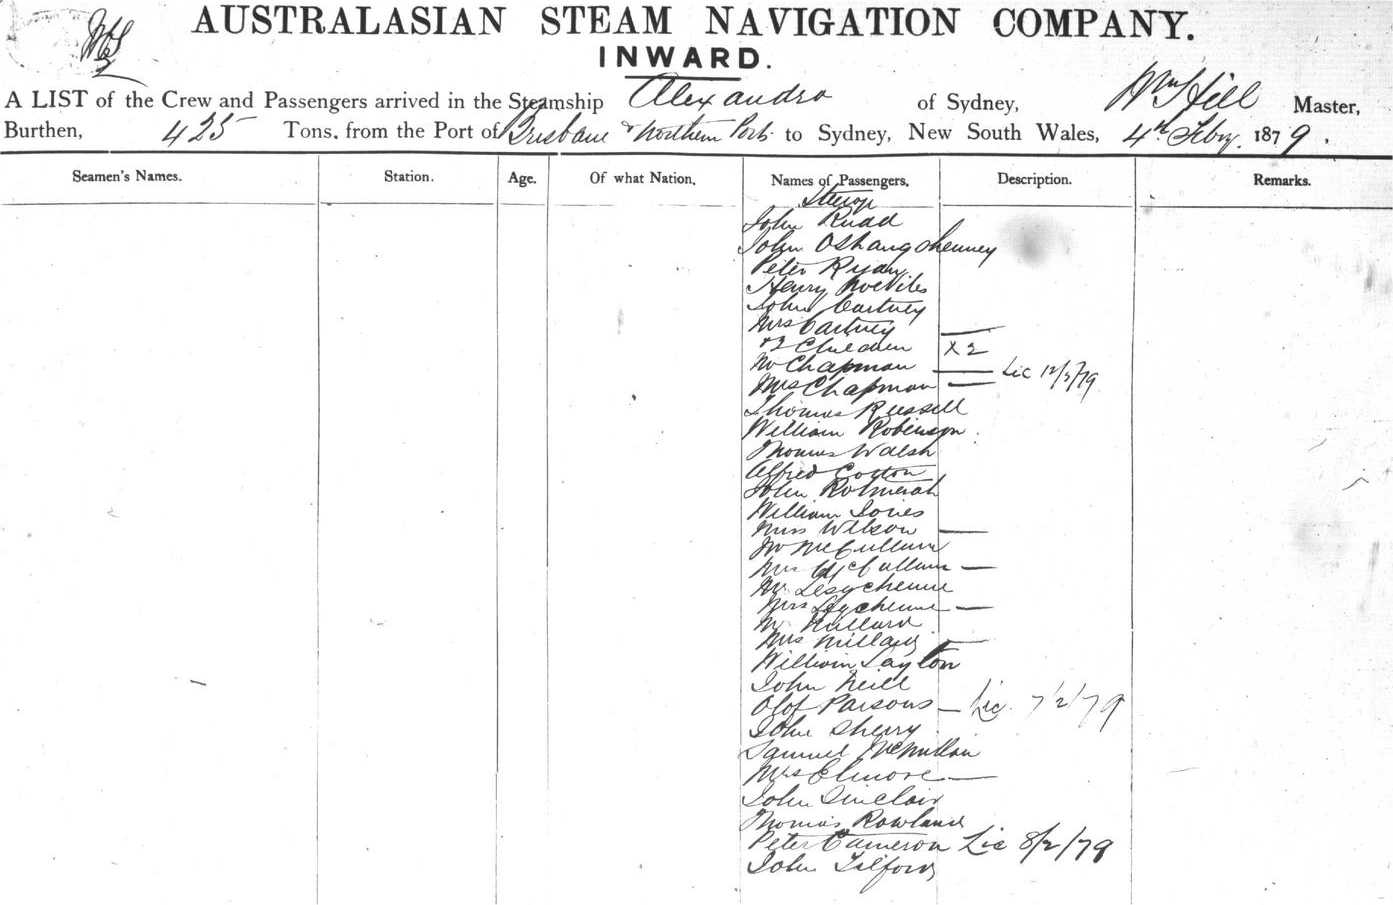 AUSTRALASIAN STEAM NAVIGATION COMPANY.
INWARD.
A LIST of the Crew and Passengers arrived in the Steamship Alexandra of Sydney, Wm Hill Master,
Burthen, 425 Tons. from the Port of Brisbane & Northern Ports to Sydney, New South Wales, 4th Feby. 1879.
Seamen's Names. Station. Age. Of what Nation. Names of Passengers. Description. Remarks.
John Ruad
John
Peter Ryan
Henry
John Cartney
Mrs Cartney
& 2 Children X 2
Mr Chapman Lic 12/2/79
Mrs Chapman
Thomas Russell
William Robinson
Thomas Walsh
Alfred Cotton
John
William Jones
Miss Wilson
Mr McCullum
Mrs McCullum
Mr
Mrs
Mr Millard
Mrs Millard
William Layton
John Neill
Olof Parsons Lic. 7/2/79
John Sherry
Samuel McMullan
Mrs Elmore
John Sinclair
Thomas Rowland
Peter Cameron Lic 8/2/79
John Tilford